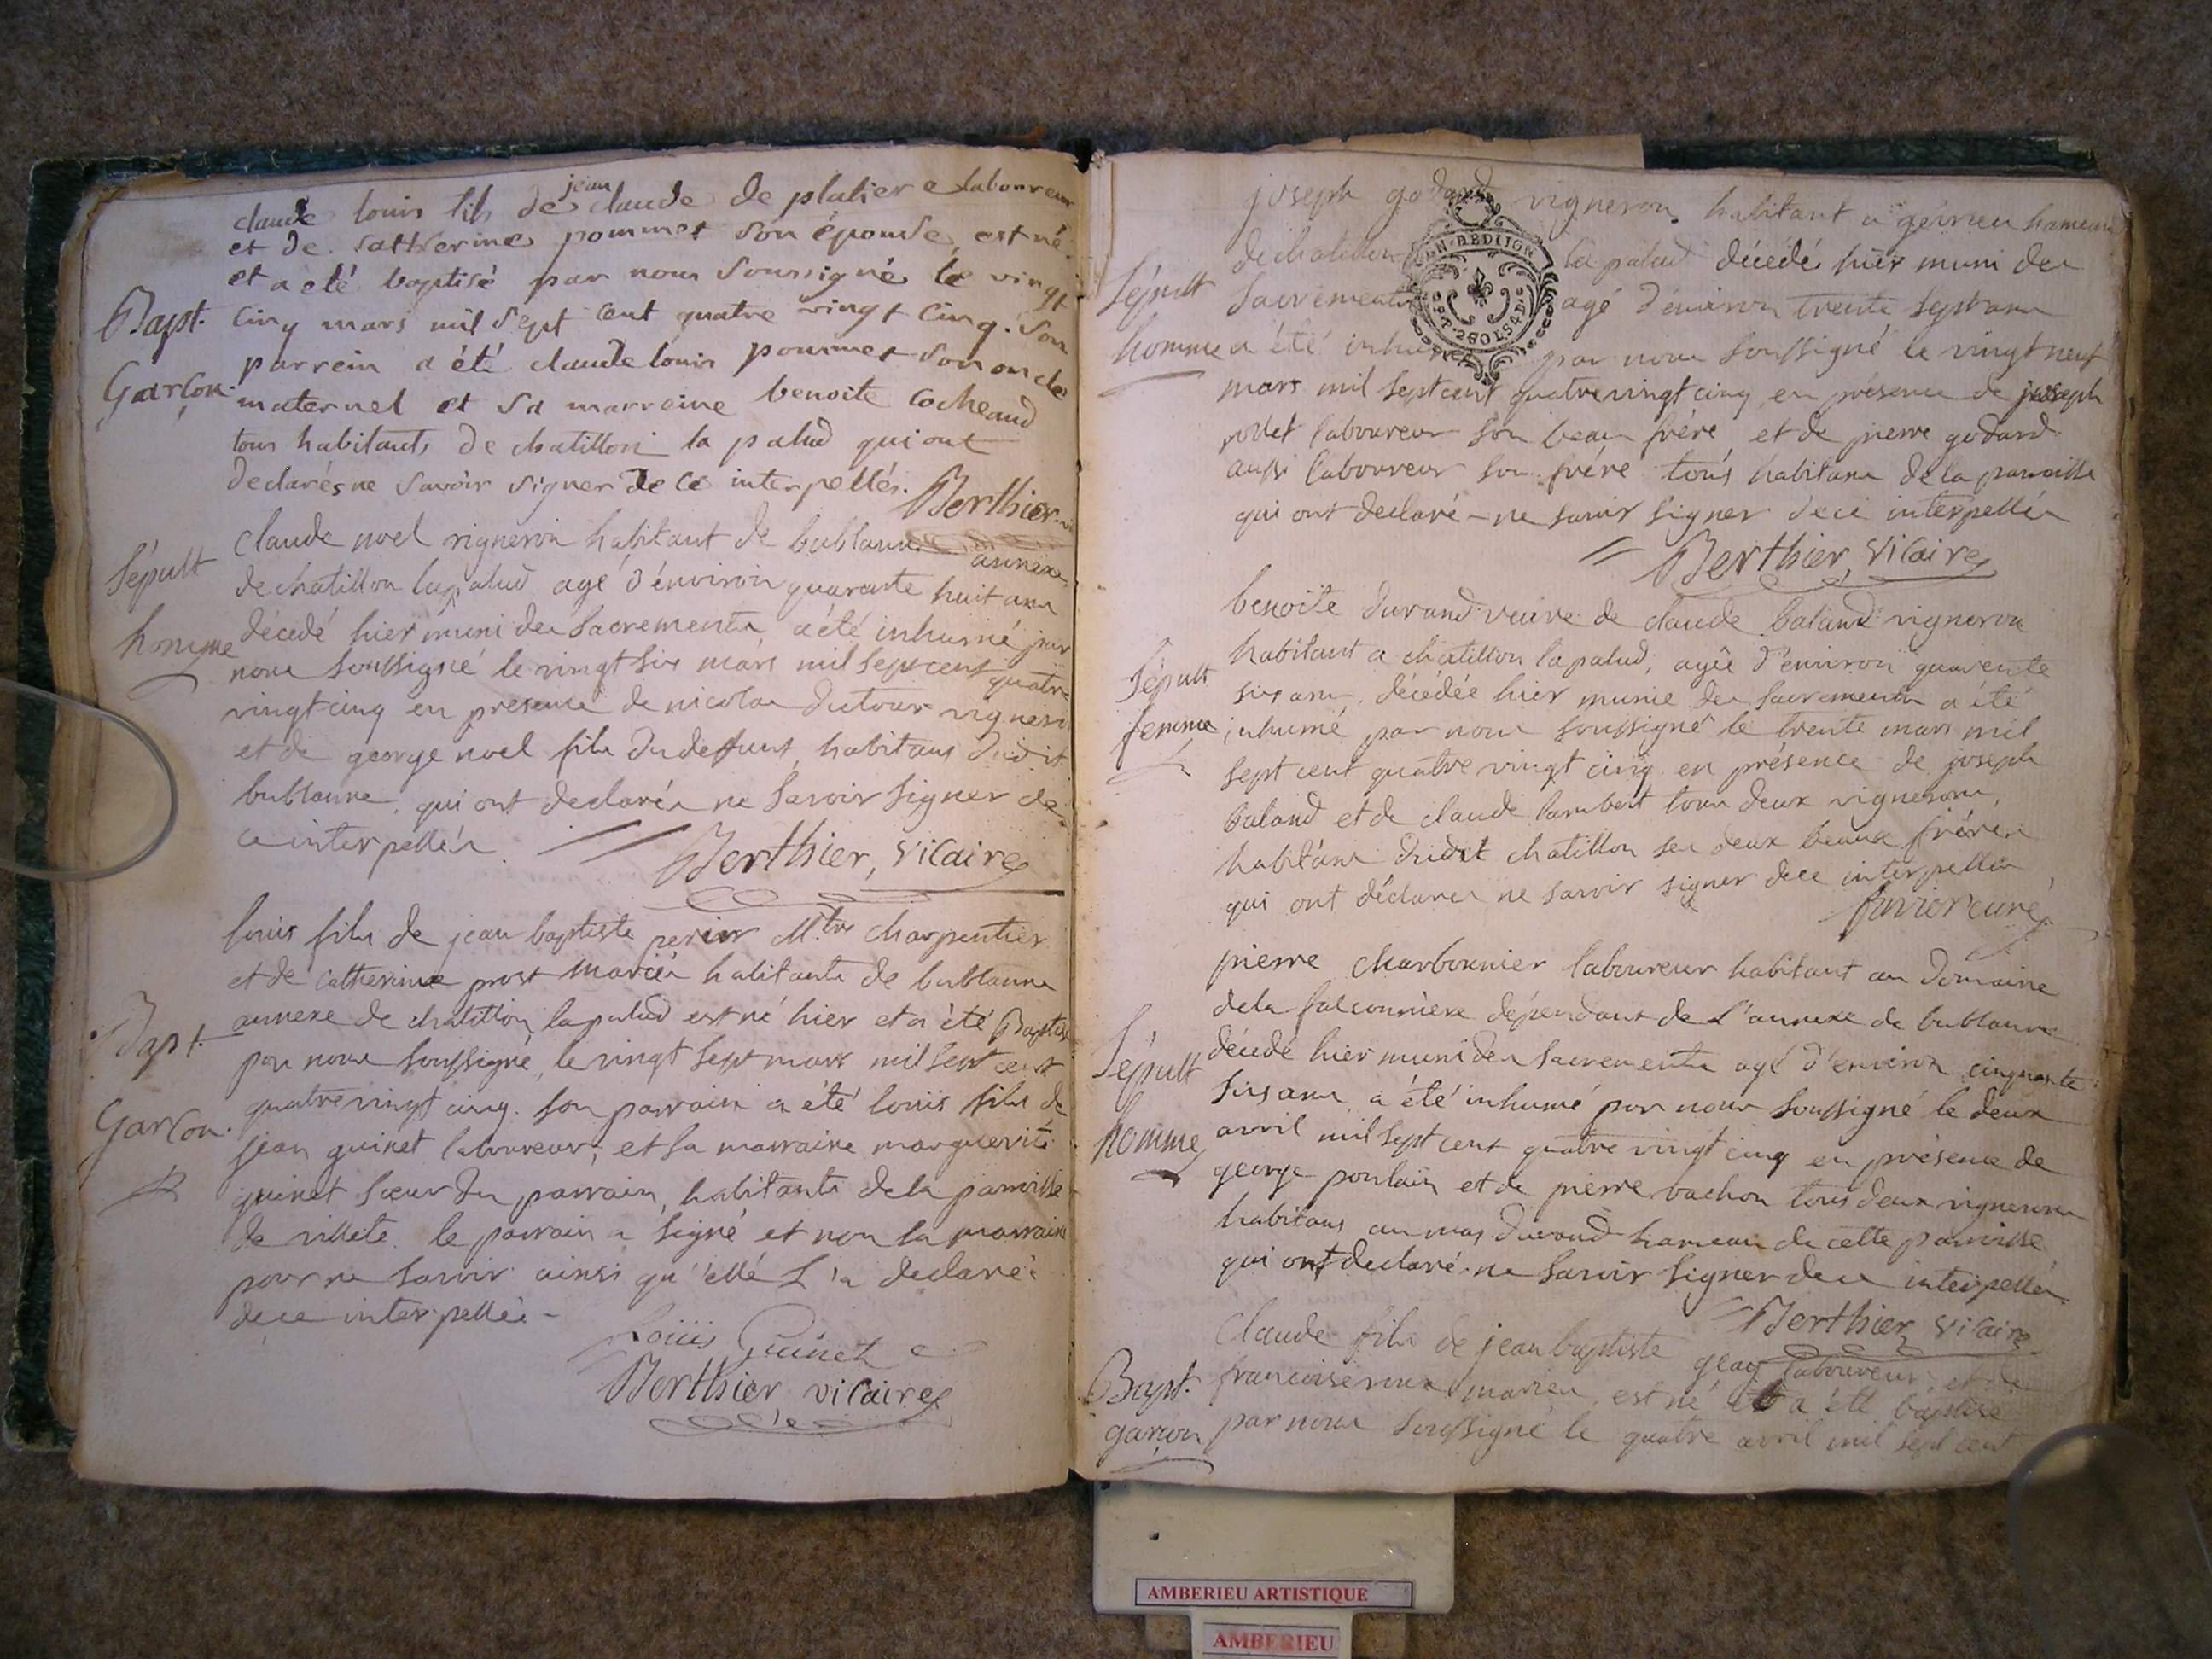 claude louis fils de jean claude de platiere laboureur
et de catherine pommet son épouse, est né
et a été baptisé par nous soussigné le vingt
Bapt. cinq mars mil sept cent quatre vingt cinq. Son
parrein a été claude louis pommet son oncle
Garçon. maternel et sa marreine benoite cocheaud
tous habitants de chatillon la palud qui ont
declarés ne savoir signer de ce interpellés. Berthier
claude noel vigneron habitant de bublanne annexe
Sépult de chatillon lapalud agé d'environ quarante huit ans
décédé hier muni des sacrements, a été inhumé par
homme nous soussigné le vingt six mars mil sept cent quatre
vingt cinq en presence de nicolas dutour vigneron
et de george noel fils du deffunt, habitans dudit
bublanne, qui ont declarés ne savoir signer de
ce interpellés. Berthier, vicaire
louis fils de jean baptiste perier M.tre charpentier
et de catherine prost mariés habitants de bublanne
annexe de chatillon lapalud est né hier et a été Baptisé
Bapt. par nous soussigné, le vingt sept mars mil sept cent
quatre vingt cinq. son parrain a été louis fils de
Garçon. jean guinet laboureur, et sa marraine marguerite
guinet sœur du parrain, habitants de la paroisse
de villete. le parrain a signé et non la marraine
pour ne savoir ainsi qu'elle l'a declaré
de ce interpellée
Louis Guinet
Berthier vicaire
joseph godard vigneron habitant a gévrieu hameau
de chatillon la palud décédé hier muni des
Sépult sacrements agé d'environ trente sept ans
homme a été inhumé par nous soussigné le vingt neuf
mars mil sept cent quatre vingt cinq en présence de joseph
laboureur son beau frére et de pierre godard
aussi laboureur son frére tous habitans de la paroisse
qui ont declaré ne savoir signer de ce interpellés
Berthier, vicaire
benoite durand veuve de claude baland vigneron
habitant a chatillon lapalud, agée d'environ quarente
Sépult six ans, décédée hier munie des sacrements a été
femme inhumé par nous soussigné le trente mars mil
sept cent quatre vingt cinq en présence de joseph
baland et de claude lambert tous deux vignerons,
habitans dudit chatillon ses deux beaux fréres
qui ont déclarés ne savoir signer de ce interpellés
curé
pierre charbonnier laboureur habitant au domaine
de la falconnière dépendant de l'annexe de bublanne
Sépult décédé hier muni des sacrements agé d'environ cinquante
six ans a été inhumé par nous soussigné le deux
homme avril mil sept cent quatre vingt cinq en présence de
george poulain et de pierre vachon tous deux vignerons
habitans au mas durand hameau de cette paroisse
qui ont declaré ne savoir signer de ce interpellés
Berthier vicaire
Claude fils de jean baptiste laboureur et de
Bapt. francoise roux mariés, est né et a été baptisé
garçon par nous soussigné le quatre avril mil sept cent
AMBERIEU ARTISTIQUE
AMBERIEU